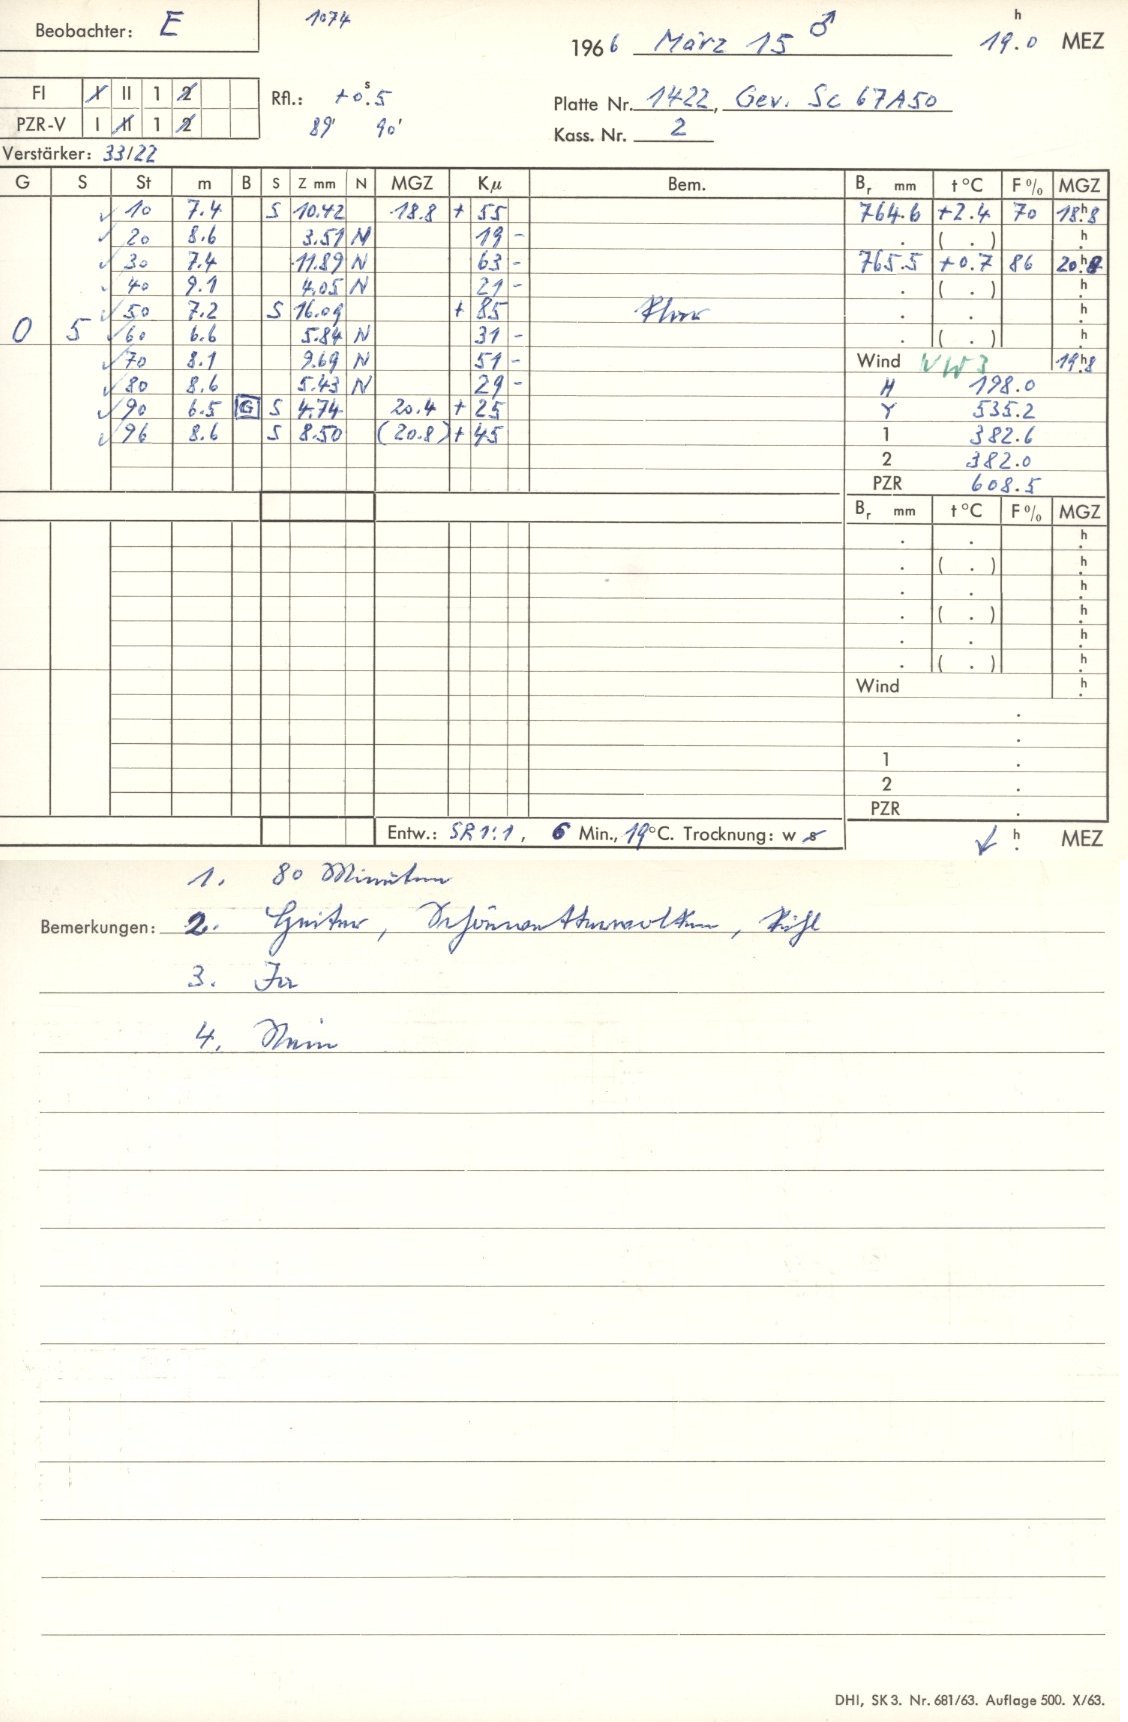 Beobachter: E 1074
1966 März 15 ♂ 19.h0 MEZ
FI I II 1 2 Rfl.: +0.s5 Platte Nr. 1422, Gev. Sc 67A50
PZR-V I II 1 2 89' 90' Kass. Nr. 2
Verstärker: 33/22
G S St m B S Z mm N MGZ Kμ Bem. Br mm t °C F % MGZ
✓ 10 7.4 S 10.42 18.8 + 55 764.6 +2.4 70 18.h8
✓ 20 8.6 3.51 N 19 - . ( . ) h
✓ 30 7.4 11.89 N 63 - 765.5 +0.7 86 20.h8
✓ 40 9.1 4.05 N 21 - . ( . ) h
✓ 50 7.2 S 16.09 + 85 Klar . . h
0 5 ✓ 60 6.6 5.84 N 31 - . ( . ) h
✓ 70 8.1 9.69 N 51 - Wind 19.h8
✓ 80 8.6 5.43 N 29 - H 198.0
✓ 90 6.5 G S 4.74 20.4 + 25 Y 535.2
✓ 96 8.6 S 8.50 (20.8) + 45 1 382.6
2 382.0
PZR 608.5
Br mm t °C F % MGZ
. . h
. ( . ) h
. . h
. ( . ) h
. . h
. ( . ) h
Wind h
.
.
1 .
2 .
PZR .
Entw.: SR 1:1, 6 Min., 19°C. Trocknung: w s h MEZ
1. 80 Minuten
Bemerkungen: 2. Heiter, Schönwetterwolken, kühl
3. Ja
4. Nein
DHI, SK 3. Nr. 681/63. Auflage 500. X/63.